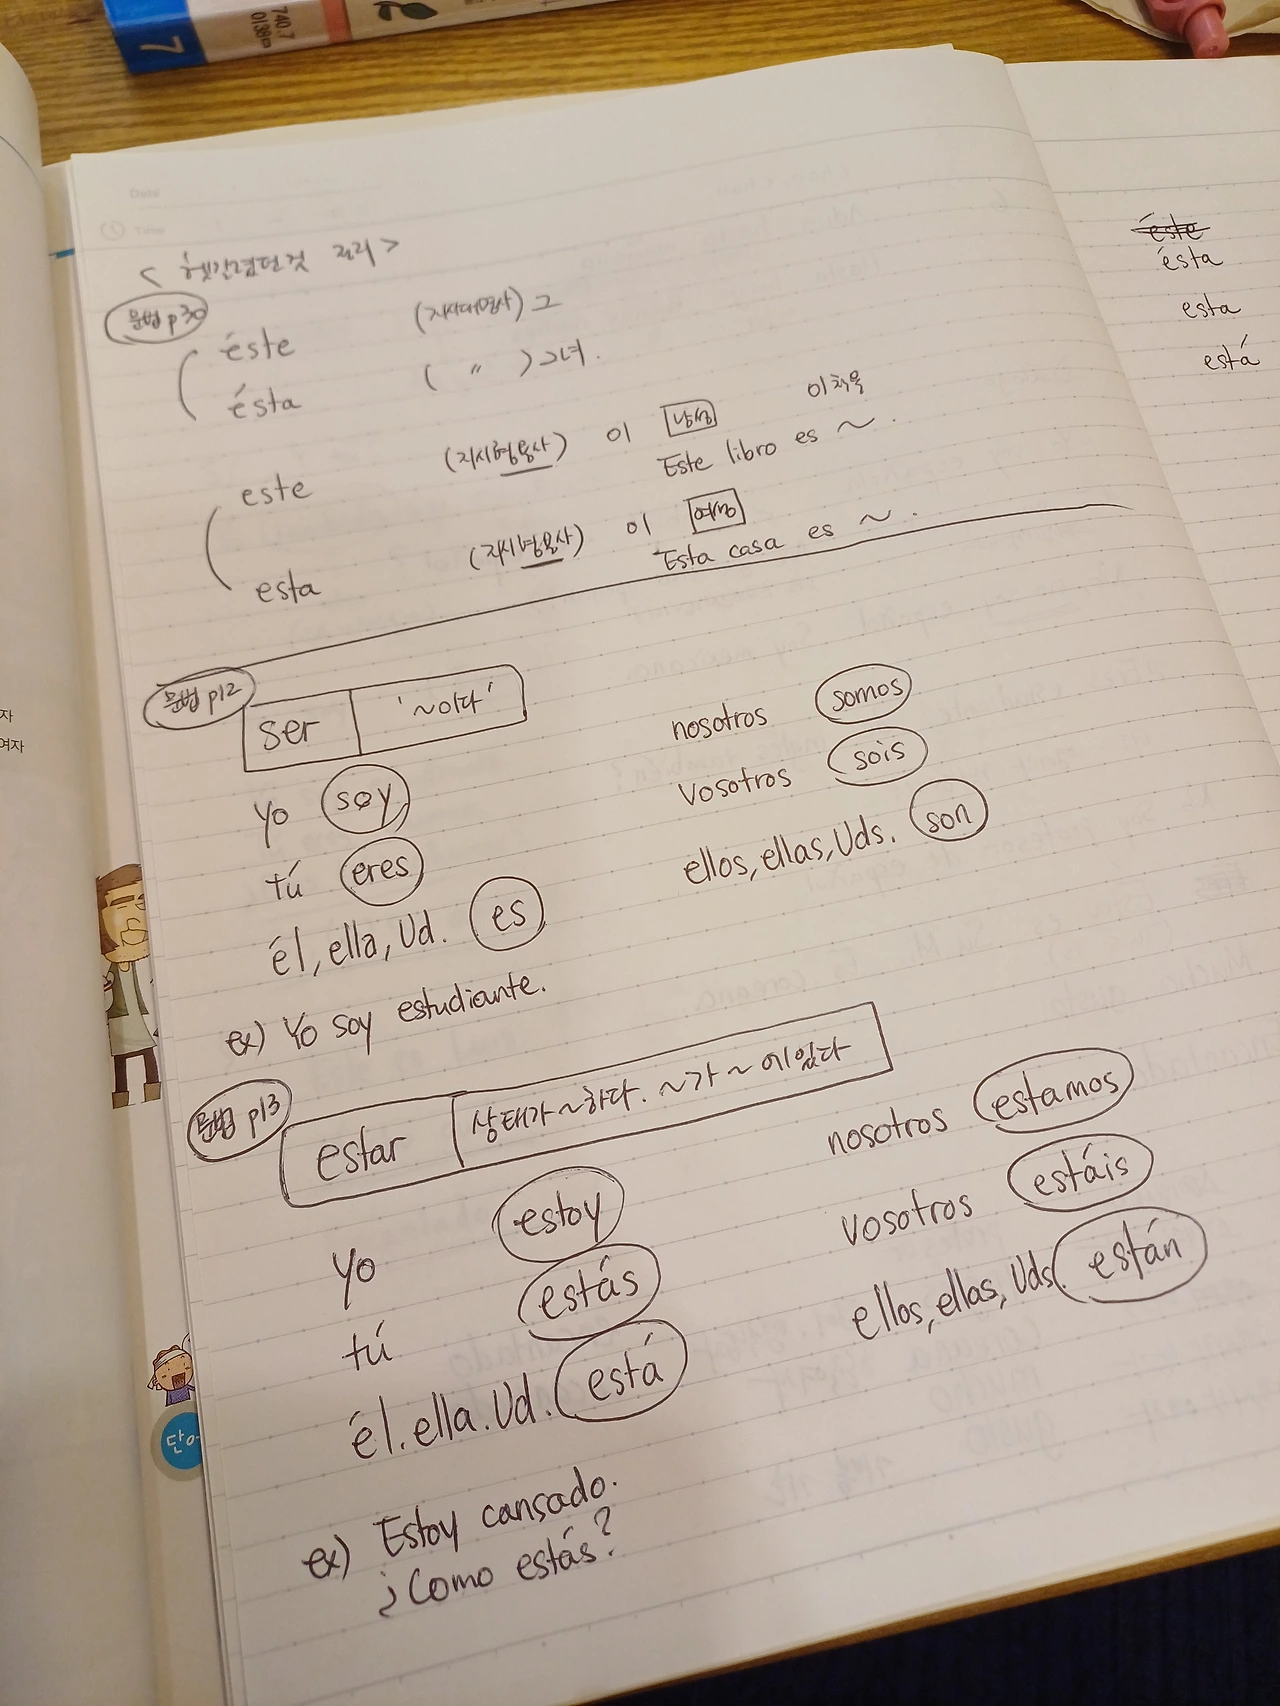 740.7
0138
7
Date
Time
< 헷갈렸던것 정리 >
문법 p30
éste (지시대명사) 그
ésta ( 〃 ) 그녀.
este (지시형용사) 이 남성 이 책은
Este libro es ~ .
esta (지시형용사) 이 여성
Esta casa es ~ .
문법 p12
ser '~이다'
yo soy
tú eres
él, ella, Ud. es
nosotros somos
vosotros sois
ellos, ellas, Uds. son
ex) Yo soy estudiante.
문법 p13
estar 상태가 ~하다. ~가 ~에 있다
yo estoy
tú estás
él. ella. Ud. está
nosotros estamos
vosotros estáis
ellos, ellas, Uds. están
ex) Estoy cansado.
¿Como estás?
éste
ésta
esta
está
자
여자
단어